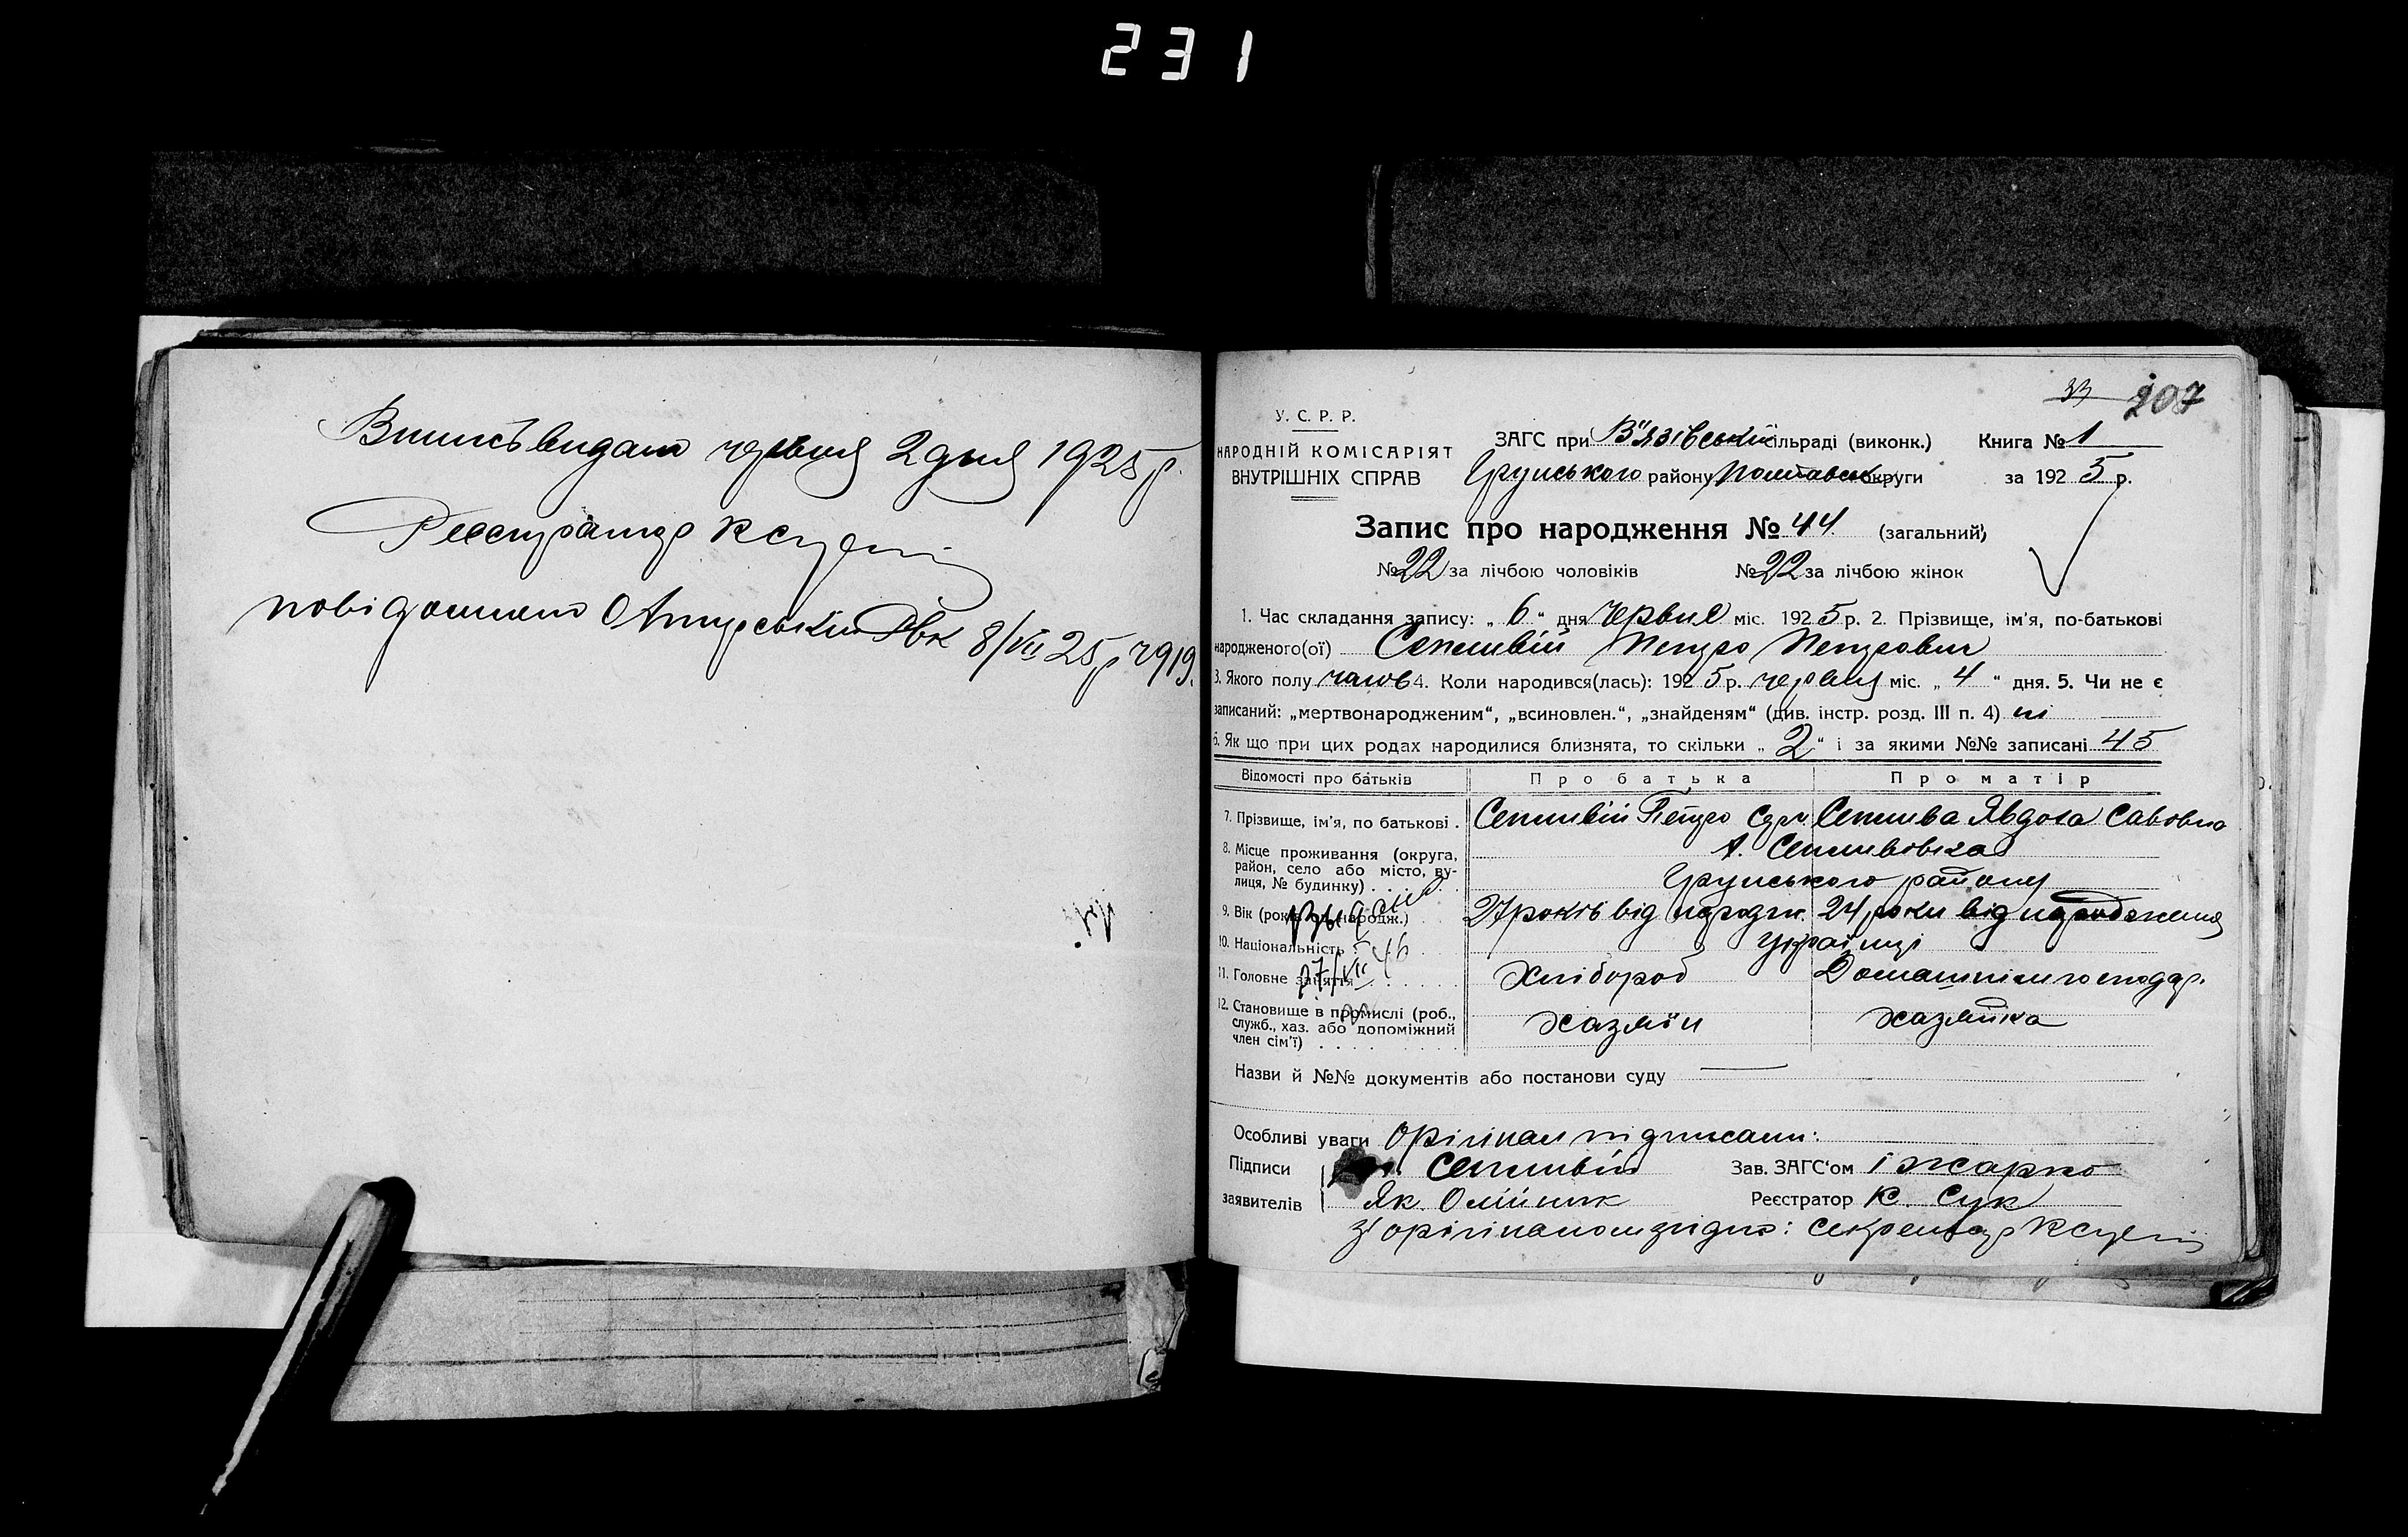 231
Випись видано червня 2 дня 1925 р.
Реєстратор К Сук
повідомлено Опішнський Рвк 8/VII 25 р
33 207
У. С. Р. Р.
НАРОДНІЙ КОМІСАРІЯТ
ВНУТРІШНІХ СПРАВ
ЗАГС при В'язівській сільраді (виконк.) Книга № 1
Грунського району Полтавськ округи за 1925 р.
Запис про народження № 44. (загальний)
№ 22 за лічбою чоловіків № 22 за лічбою жінок
1. Час складання запису: „ 6 “ дня червня міс. 1925 р. 2. Прізвище, ім'я, по-батькові
народженого(ої) Сепливій Петро Петрович
3. Якого полу чолов 4. Коли народився(лась): 1925 р. червня міс. „ 4 “ дня. 5. Чи не є
записаний: „мертвонародженим“, „всиновлен.“, „знайденям“ (див. інстр. розд. III п. 4) ні
6. Як що при цих родах народилися близнята, то скільки „ 2 “ і за якими №№ записані 45
Відомості про батьків Про батька Про матір
7. Прізвище, ім'я, по батькові . Сепливій Петро Сеплива Явдоха Савовна
8. Місце проживання (округа, район, село або місто, вулиця, № будинку) . . . . . Х. Сепливівка
Грунського району
9. Вік (років од народж.) 27 років від народж. 24 роки від народження
10. Національність : Українці
11. Головне заняття . . . . . . Хлібороб Домашнім господар.
12. Становище в промислі (роб., служб., хаз. або допоміжний член сім'ї) . . . . . . . . хазяїн хазяйка
27/VII
Назви й №№ документів або постанови суду —
Особливі уваги Орігінал підписали:
Підписи Сепливій Зав. ЗАГС'ом І Жарко
заявителів Як. Олійник Реєстратор К. Сук
З орігіналом згідно: секретар К Сук